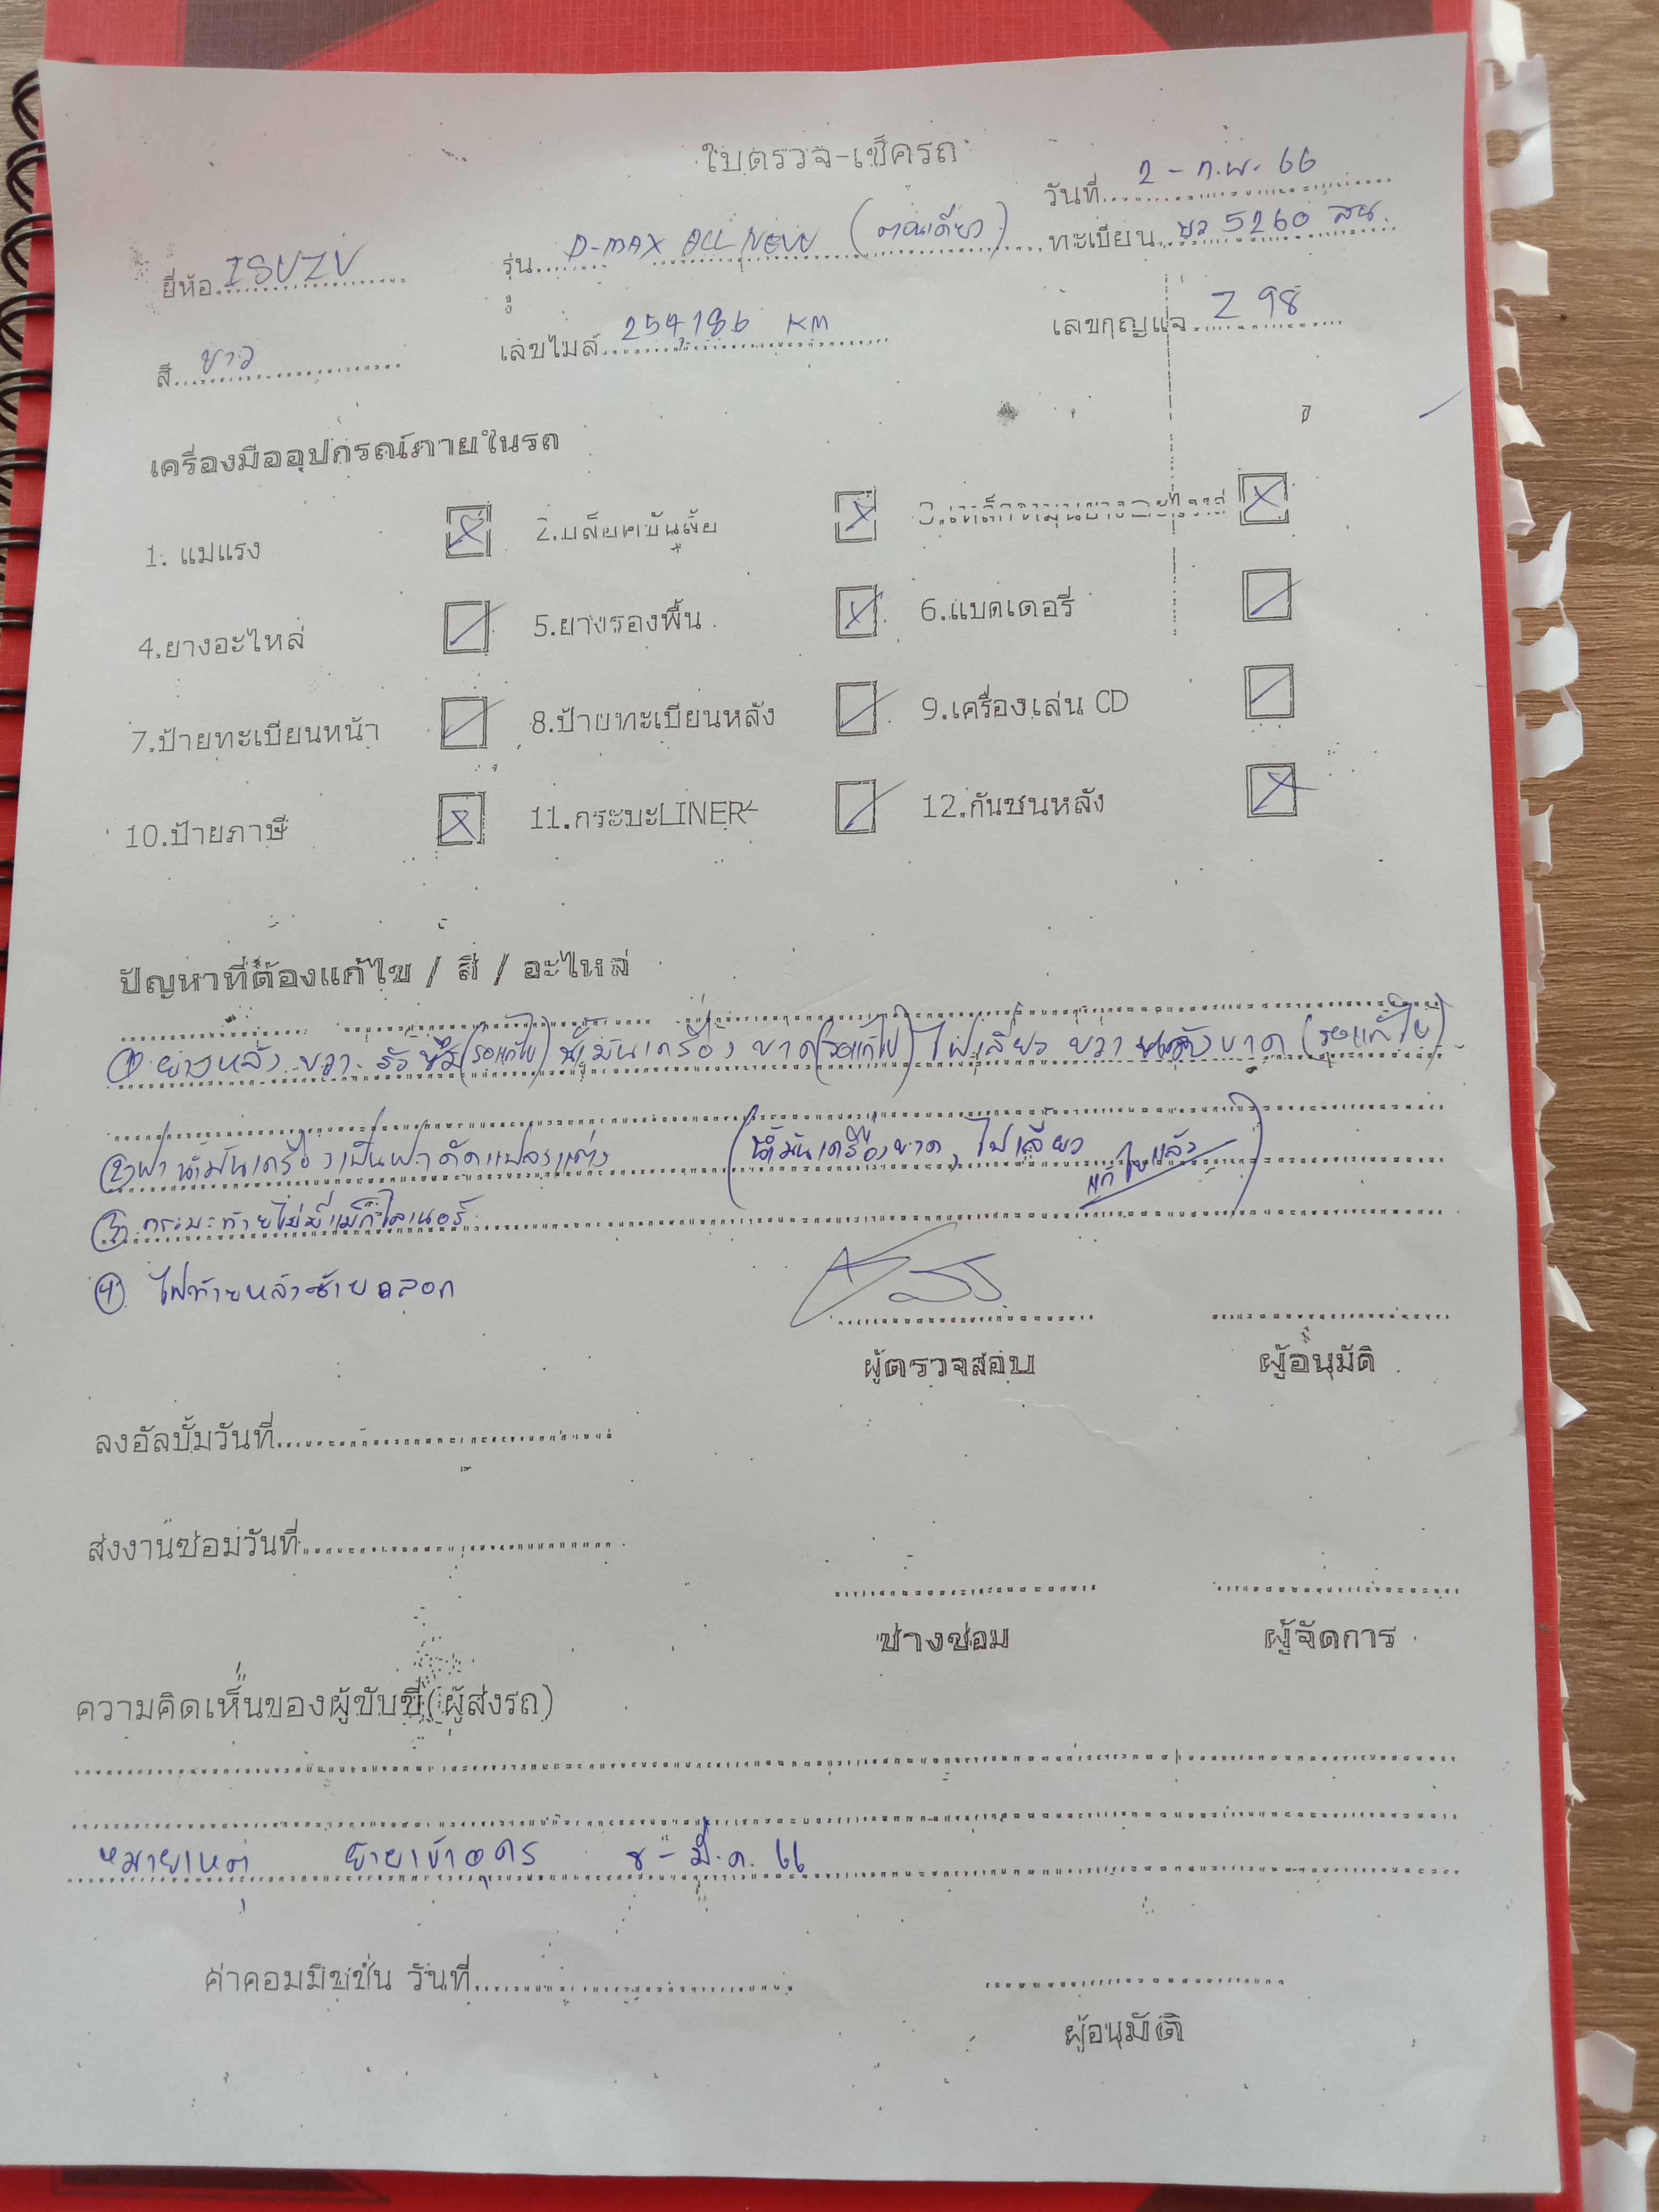 ใบตรวจ-เช็ครถ
วันที่ 2 - ก.พ. 66
ยี่ห้อ ISUZU รุ่น D-MAX ALL NEW (ตอนเดียว) ทะเบียน 5260 สน.
สี ขาว เลขไมล์ 254186 KM เลขกุญแจ Z 98
เครื่องมืออุปกรณ์ภายในรถ
1. แม่แรง 2.บล็อคขันล้อ
4.ยางอะไหล่ 5.ยางรองพื้น 6.แบตเตอรี่
7.ป้ายทะเบียนหน้า 8.ป้ายทะเบียนหลัง 9.เครื่องเล่น CD
10.ป้ายภาษี 11.กระบะLINER 12.กันชนหลัง
ปัญหาที่ต้องแก้ไข / สี / อะไหล่
① ยางหลัง ขวา รั่วซึม (รอแก้ไข) น้ำมันเครื่อง ขาด (รอแก้ไข) ไฟเลี้ยว ขวา หลัง ขาด (รอแก้ไข)
② ฝาน้ำมันเครื่องเป็นฝาดัดแปลงแต่ง (น้ำมันเครื่องขาด, ไฟเลี้ยว แก้ไขแล้ว)
③ กระบะท้ายไม่มีแม็กไลเนอร์
④ ไฟท้ายหลังซ้าย
ผู้ตรวจสอบ ผู้อนุมัติ
ลงอัลบั้มวันที่
ส่งงานซ่อมวันที่
ช่างซ่อม ผู้จัดการ
ความคิดเห็นของผู้ขับขี่(ผู้ส่งรถ)
หมายเหตุ ย้ายเข้าอุดร 8 - มี.ค. 66
ค่าคอมมิชชั่น วันที่
ผู้อนุมัติ